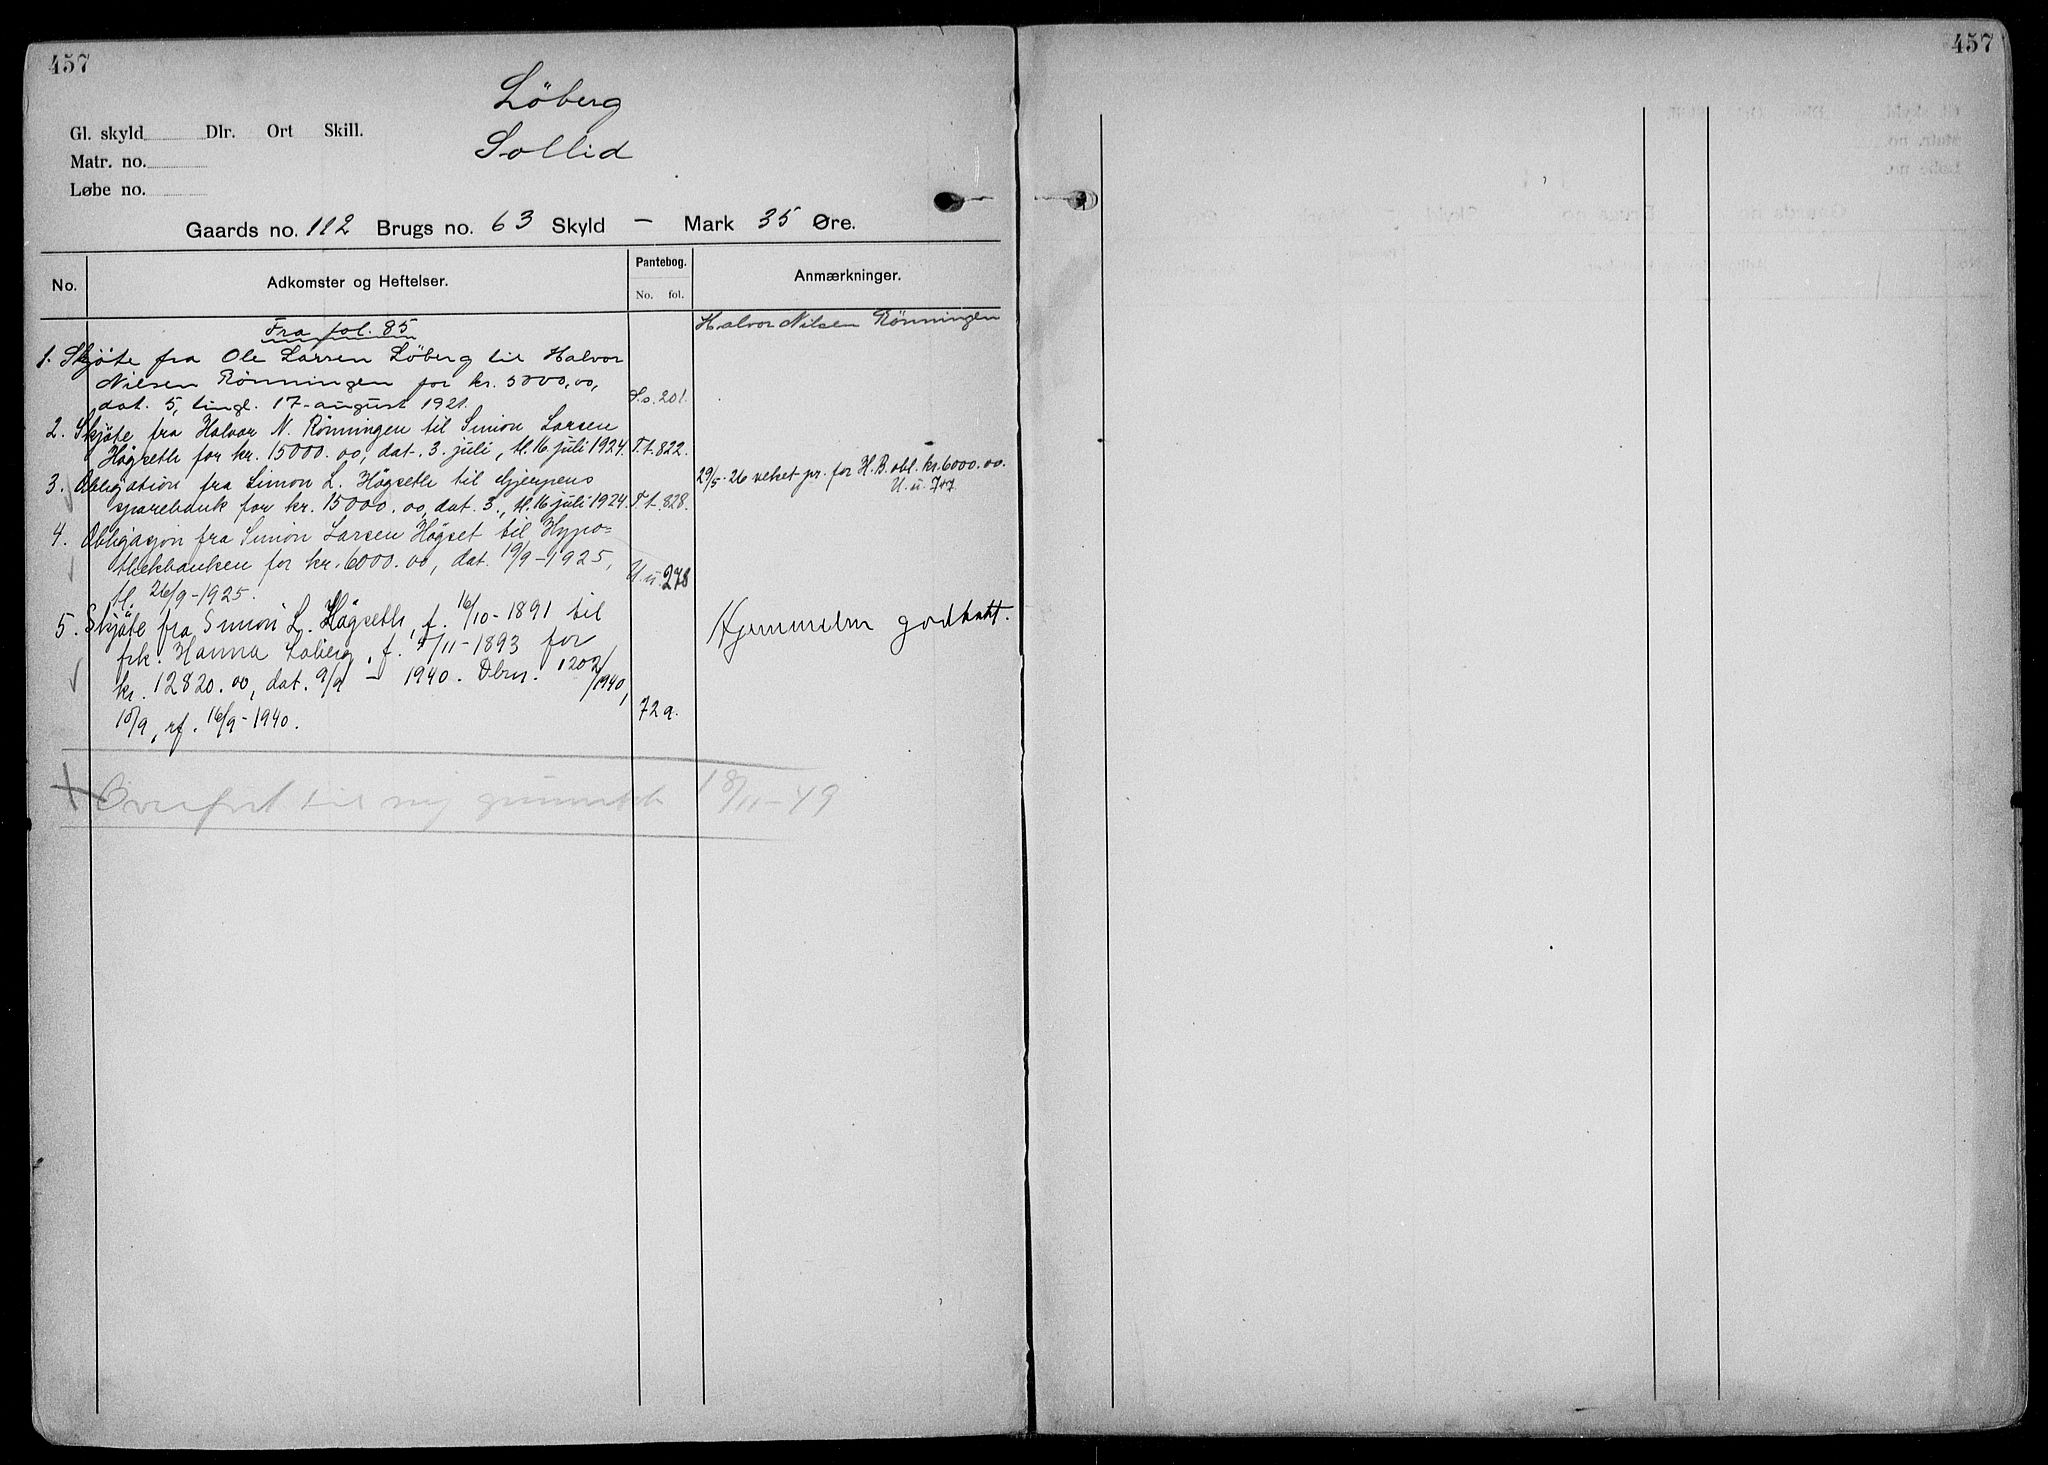 457
Löberg
Gl. skyld Dlr. Ort Skill.
Sollid
Matr. no.
Løbe no.
Gaards no. 112 Brugs no. 63 Skyld – Mark 35 Øre.
No. Adkomster og Heftelser. Pantebog. No. fol. Anmærkninger.
Fra fol. 85
Halvor Nilsen Rönningen
1. Skjöte fra Ole Larsen Löberg til Halvor
Nilsen Rönningen for kr. 5000,00,
dat. 5, tingl. 17-august 1921. S.s. 201.
2. Skjöte fra Halvor N. Rönningen til Simon Larsen
Högseth for kr. 15000.00, dat. 3. juli, tl. 16 juli 1924. T.t. 822.
3. Obligation fra Simon L. Högseth til Gjerpens
29/5-26 veket pr. for H.B. obl. kr. 6000.00.
U.u. 747
sparebank for kr. 15000.00, dat. 3., tl. 16 juli 1924. T.t. 828.
4. Obligasjon fra Simon Larsen Högset til Hypo-
thekbanken for kr. 6000.00, dat. 19/9-1925,
tl. 26/9-1925. U.u. 278
5. Skjöte fra Simon L. Högseth, f. 16/10-1891 til
Hjemmelen godkatt.
frk. Hanna Löberg, f. 4/11-1893 for
kr. 12820.00, dat. 9/9 - 1940. Dbnr. 1202/1940,
10/9, rf. 16/9-1940. 72a.
+ Overfört til ny 18/11-49
457